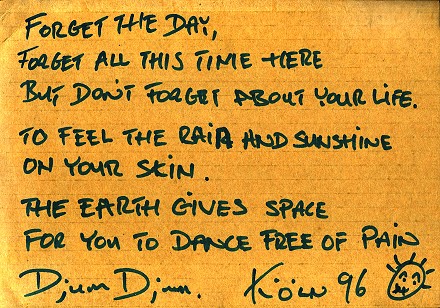 FORGET THE DAY,
FORGET ALL THIS TIME HERE
BUT DON'T FORGET ABOUT YOUR LIFE.
TO FEEL THE RAIN AND SUNSHINE
ON YOUR SKIN.
THE EARTH GIVES SPACE
FOR YOU TO DANCE FREE OF PAIN
Djum Djum. KÖLN 96